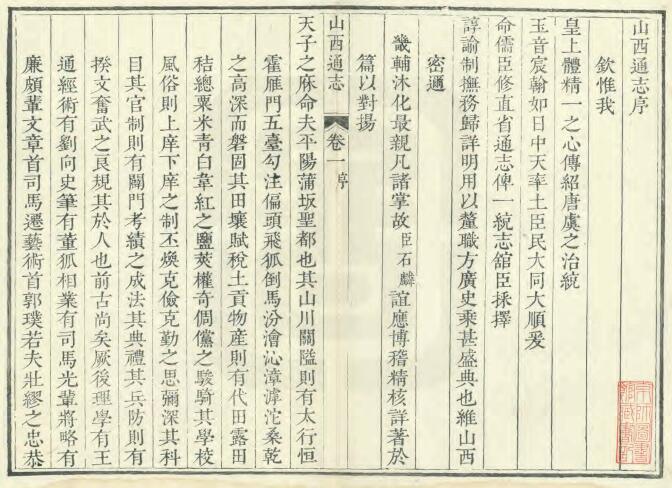 山西通志序
欽惟我
皇上體精一之心傳紹唐虞之治統
玉音宸翰如日中天率土臣民大同大順爰
命儒臣修直省通志俾一統志舘臣採擇
諄諭制撫務歸詳明用以釐職方廣史乘甚盛典也維山西
密邇
畿輔沐化最親凡諸掌故臣石麟誼應博稽精核詳著於
篇以對揚
山西通志 卷一 序
天子之庥命夫平陽蒲坂聖都也其山川關隘則有太行恒
霍雁門五臺勾注偏頭飛狐倒馬汾澮沁漳滹沱桑乾
之高深而磐固其田壤賦稅土貢物產則有代田露田
秸總粟米青白韋紅之鹽莢權奇倜儻之駿騎其學校
風俗則上庠下庠之制丕煥克儉克勤之思彌深其科
目其官制則有闢門考績之成法其典禮其兵防則有
揆文奮武之良規其於人也前古尚矣厥後理學有王
通經術有劉向史筆有董狐相業有司馬光輩將略有
廉頗輩文章首司馬遷藝術首郭璞若夫壯繆之忠恭